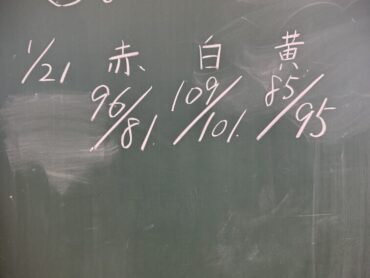 1/21 赤 白 黄
96/81 109/101 85/95